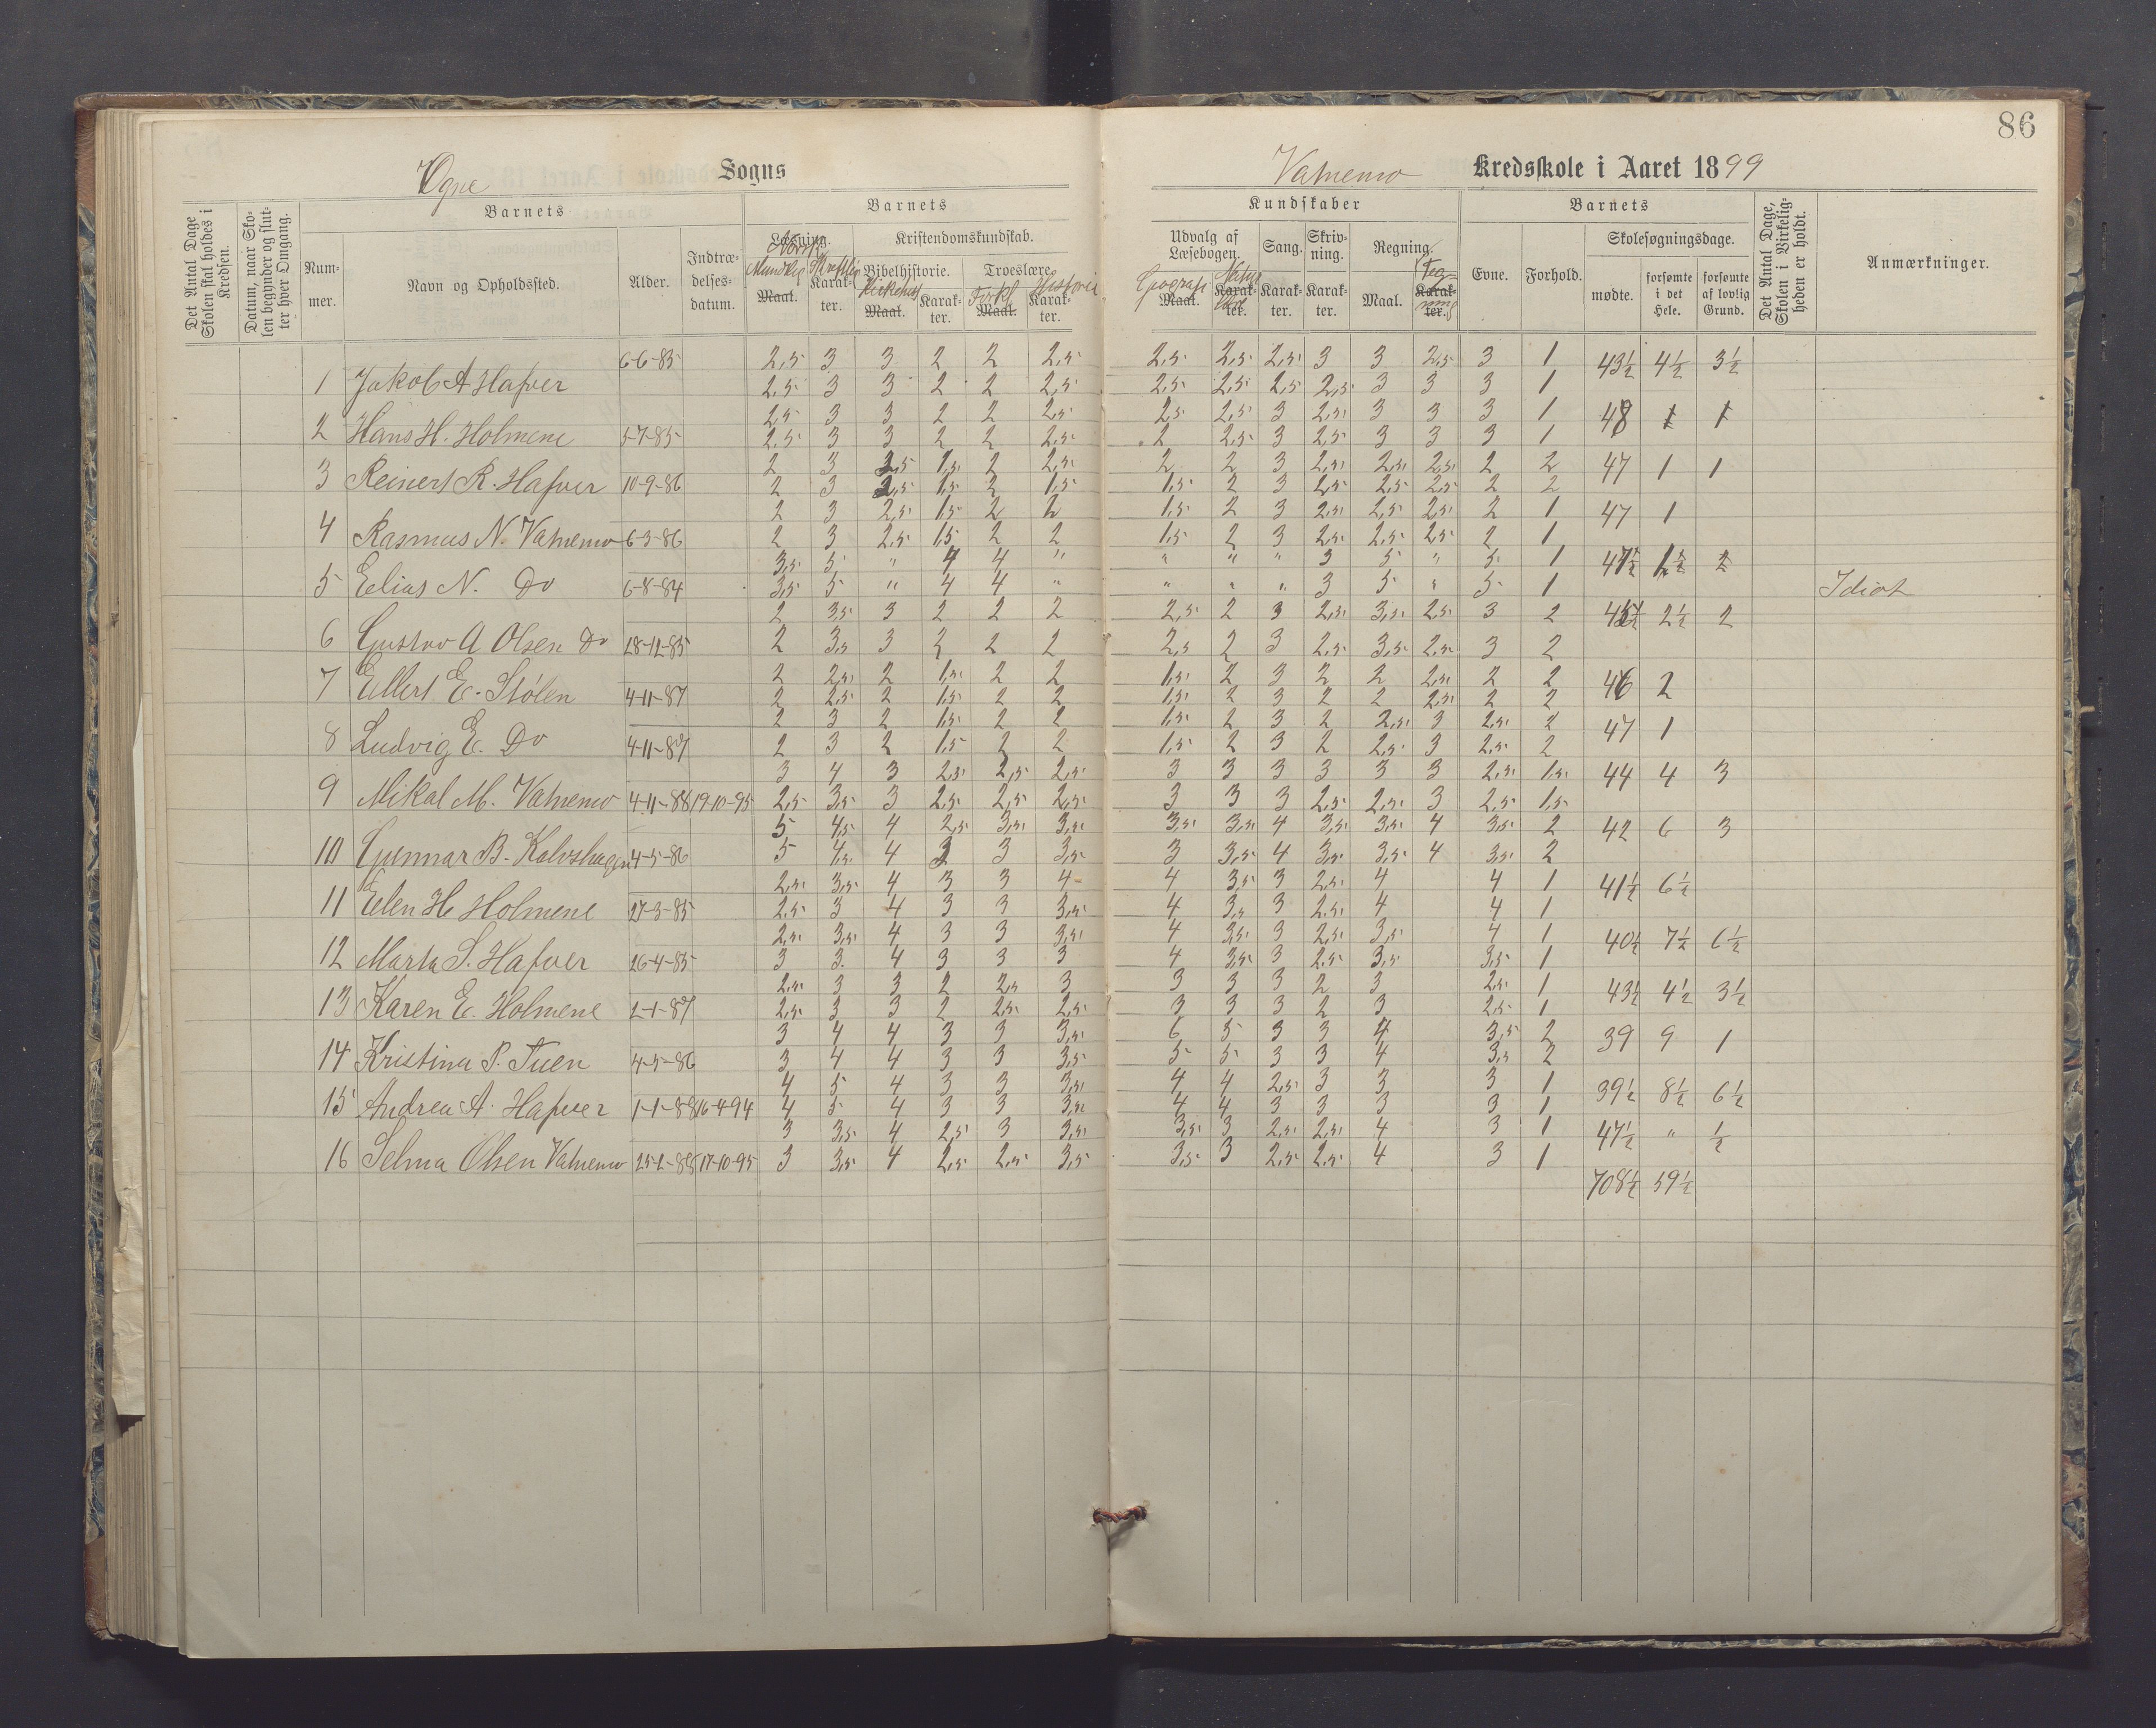 86
Ogne Sogns Vatnemo Kredsskole i Aaret 1899
Det Antal Dage Skolen skal holdes i Kredsen.
Datum, naar Skolen begynder og slutter hver Omgang.
Barnets
Nummer.
Navn og Opholdssted.
Alder.
Indtrædelsesdatum.
Barnets
Læsning. Norsk
Mundtlig Maal.
Skriftlig Karakter.
Kristendomskundskab.
Bibelhistorie.
Kirkehist Maal.
Karakter.
Troeslære.
Forkl Maal.
Historie Karakter.
Kundskaber
Udvalg af Læsebogen.
Geografi Maal.
Natur Karakter.
Sang.
Karakter.
Skrivning.
Karakter.
Regning.
Maal.
Tegning Karakter.
Barnets
Evne.
Forhold.
Skolesøgningsdage.
mødte.
forsømte i det Hele.
forsømte af lovlig Grund.
Det Antal Dage, Skolen i Virkeligheden er holdt.
Anmærkninger.
6-6-85 2,5 3 3 2 2 2,5 2,5 2,5 2,5 3 3 2,5 3 1 43½ 4½ 3½
1 Jakob A Hafver 2,5 3 3 2 2 2,5 2,5 2,5 2,5 2,5 3 3 3 1
2,5 3 3 2 2 2,5 2,5 2,5 3 2,5 3 3 3 1 48 1 1
2 Hans H. Holmene 5-7-85 2,5 3 3 2 2 2,5 2 2,5 3 2,5 3 3 3 1
2 3 2,5 1,5 2 2,5 2 2 3 2,5 2,5 2,5 2 2 47 1 1
3 Reinert R. Hafver 10-9-86 2 3 2,5 1,5 2 1,5 1,5 2 3 2,5 2,5 2,5 2 2
2 3 2,5 1,5 2 2 1,5 2 3 2,5 2,5 2,5 2 1 47 1
4 Rasmus N. Vatnemo 6-3-86 2 3 2,5 1,5 2 2 1,5 2 3 2,5 2,5 2,5 2 1
3,5 5 " 4 4 " " " " 3 5 " 5 1
5 Elias N. Do 6-8-84 3,5 5 " 4 4 " " " " 3 5 " 5 1 Idiot
2 3,5 3 2 2 2 2,5 2 3 2,5 3,5 2,5 3 2 2½ 2
6 Gustav A Olsen Do 28-12-85 2 3,5 3 2 2 2 2,5 2 3 2,5 3,5 2,5 3 2
2 2,5 2 1,5 2 2 1,5 2 3 2 2 2,5 2 2 46 2
7 Ellert E. Stølen 4-11-87 2 2,5 2 1,5 2 2 1,5 2 3 2 2 2,5 2 2
2 3 2 1,5 2 2 1,5 2 3 2 2,5 3 2,5 2 47 1
8 Ludvig E. Do 4-11-87 2 3 2 1,5 2 2 1,5 2 3 2 2,5 3 2,5 2
3 4 3 2,5 2,5 2,5 3 3 3 3 3 3 2,5 1,5 44 4 3
9 Mikal M. Vatnemo 4-11-88 19-10-95 2,5 3,5 3 2,5 2,5 2,5 3 3 3 2,5 2,5 3 2,5 1,5
5 4,5 4 2,5 3,5 3,5 3,5 3,5 4 3,5 3,5 4 3,5 2 42 6 3
10 Gunnar B. Kalvshagen 4-5-86 5 4,5 4 3 3 3,5 3 3,5 4 3,5 3,5 4 3,5 2
2,5 3,5 4 3 3 4 4 3,5 3 2,5 4 4 1 41½ 6½
11 Elen H Holmene 27-3-85 2,5 3 4 3 3 3,5 4 3,5 3 2,5 4 4 1
2,5 3,5 4 3 3 3,5 4 3,5 3 2,5 3,5 4 1 40½ 7½ 6½
12 Marta S. Hafver 26-4-85 3 3 4 3 3 3 4 3,5 3 2,5 3,5 3,5 1
2,5 3 3 2 2,5 3 3 3 3 2 3 2,5 1 43½ 4½ 3½
13 Karen E. Holmene 2-1-87 2,5 3 3 2 2,5 2,5 3 3 3 2 3 2,5 1
3 4 4 3 3 3,5 6 5 3 3 4 3,5 2 39 9 1
14 Kristina P. Tuen 4-5-86 3 4 4 3 3 3,5 5 5 3 3 4 3,5 2
4 5 4 3 3 3,5 4 4 2,5 3 3 3 1 39½ 8½ 6½
15 Andrea A. Hafver 1-1-88 16-4-94 4 5 4 3 3 3,5 4 4 3 3 3 3 1
3 3,5 4 2,5 3 3,5 3,5 3 2,5 2,5 4 3 1 47½ " ½
16 Selma Olsen Vatnemo 25-2-88 17-10-95 3 3,5 4 2,5 2,5 3,5 3,5 3 2,5 2,5 4 3 1
708½ 59½